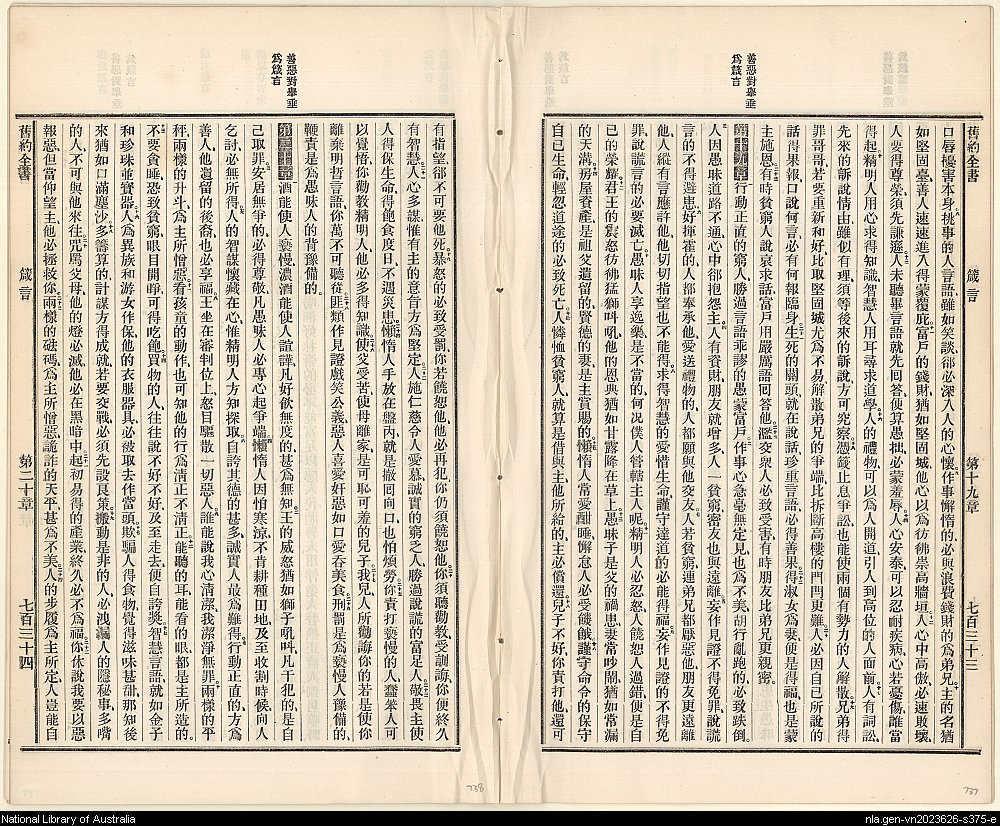 善惡對舉垂
為箴言
舊約全書
箴言
第十九章
七百三十三
口唇擾害本身挑事的人言語雖如笑談卻必深入人的心懷作事懈惰的必與浪費錢財的為弟兄主的名猶
如堅固臺善人速速進入得蒙覆庇富戶的錢財猶如堅固城他心以為彷彿崇高牆垣人心中高傲必速敗壞
人要得尊榮須先謙遜人未聽畢言語就先回答便算愚拙必蒙羞辱人心安泰可以忍耐疾病心若憂傷誰當
得起精明人用心求得知識智慧人用耳尋求道學人的禮物可以為人開道引人到高位的人面前人有詞訟
先來的訴說情由雖似有理須等後來的訴說方可究察憑籤止息爭訟也能使兩個有勢力的人解散弟兄得
罪哥哥若要重新和好比取堅固城尤為不易解散弟兄的爭端比拆斷高樓的門閂更難人必因自己所說的
話得果報口說何言必有何報臨身生死的關頭就在說話珍重言語必得善果得淑女為妻便是得福也是蒙
主施恩有時貧窮人說哀求話富戶用嚴厲語回答他濫交衆人必致受害有時朋友比弟兄更親密
第十九章行動正直的窮人勝過言語乖謬的愚蒙富戶作事心急毫無定見也為不美胡行亂跑的必致跌倒
人因愚昧道路不通心中卻抱怨主人有資財朋友就增多人一貧窮密友也與遠離妄作見證不得免罪說謊
言的不得避患好揮霍的人都奉承他愛送禮物的人都願與他交友人若貧窮連弟兄都厭惡他朋友更遠離
他人縱有言應許他他切切指望也不能得求得智慧的愛惜生命謹守達道的必能得福妄作見證的不得免
罪說謊言的必要滅亡愚昧人享逸樂是不當的何況僕人管轄主人呢精明人必忍怒人饒恕人過錯便是自
己的榮耀君王的氣怒彷彿猛獅吼叫他的恩典猶如甘露降在草上愚昧子是父的禍患妻常吵鬧猶如常漏
的天溝房屋資產是祖父遺留的賢德的妻是主賞賜的懶惰人常愛酣睡懈怠人必受饑餓謹守命令的保守
自己生命輕忽道途的必致死亡人憐恤貧窮人就算是借與主他所給的主必償還兒子不好你責打他還可
善惡對舉垂
為箴言
有指望卻不可要他死暴怒的必致受罰你若饒恕他他必再犯你仍須饒恕他你須聽勸教受訓誨你便終久
有智慧人心多謀惟有主的意旨方為堅定人施仁慈令人愛慕誠實的窮乏人勝過說謊的富足人敬畏主使
人得保生命得飽食度日不遇災患懶惰人手放在盤內就是撤回向口也怕煩勞你責打褻慢的人蠢笨人可
以覺悟你勸教精明人他必多得知識使父受苦使母離家是可恥可羞的兒子我兒人所勸誨你的若是使你
離棄明哲言語你萬不可聽從匪類作見證戲笑公義惡人喜愛奸惡如口愛吞美食刑罰是為褻慢人豫備的
鞭責是為愚昧人的背豫備的
第二十章酒能使人褻慢濃酒能使人諠譁凡好飲無度的甚為無知王的威怒猶如獅子吼叫凡干犯的是自
己取罪安居無爭的必得尊敬凡愚昧人必專心起爭端懶惰人因怕寒涼不肯耕種田地及至收割時候向人
乞討必無所得人的智謀懷藏在心惟精明人方知探取自誇其德的甚多誠實人最為難得行動正直的方為
善人他遺留的後裔也必享福王坐在審判位上怒目驅散一切惡人誰能說我心清潔我潔淨無罪兩樣的平
秤兩樣的升斗為主所憎惡看孩童的動作也可知他的行為清正不清正能聽的耳能看的眼都是主所造的
不要貪睡恐致貧窮眼目開睜可得吃飽買物的人往往說不好不好及至走去便自誇獎智慧言語就如金子
和珍珠並寶器人為異族和游女作保他的衣服器具必被取去作當頭欺騙人得食物覺得滋味甚甜那知後
來猶如口滿塵沙多籌算的計謀方得成就若要交戰必須先設良策搬動是非的人必洩漏人的隱秘事多嘴
的人不可與他來往咒罵父母他的燈必滅他必在黑暗中起初易得的產業終久必不為福你休說我要以惡
報惡但當仰望主他必拯救你兩樣的砝碼為主所憎惡詭詐的天平甚為不美人的步履為主所定人豈能自
舊約全書
箴言
第二十章
七百三十四
738
737
National Library of Australia
nla.gen-vn2023626-s375-e